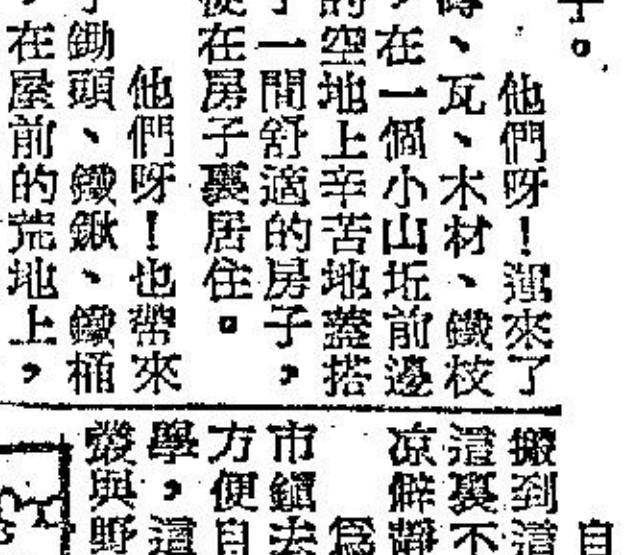 子。
他們呀！運來了
磚、瓦、木材、鐵枝
，在一個小山坵前邊
的空地上辛苦地蓋搭
了一間舒適的房子，
便在房子裏居住。
他們呀！也帶來
了鋤頭、鐵鍬、鐵桶
，在屋前的荒地上，
自
搬到這
這裏不
凉僻靜
爲
市鎮去
方便自
學，這
叢與野